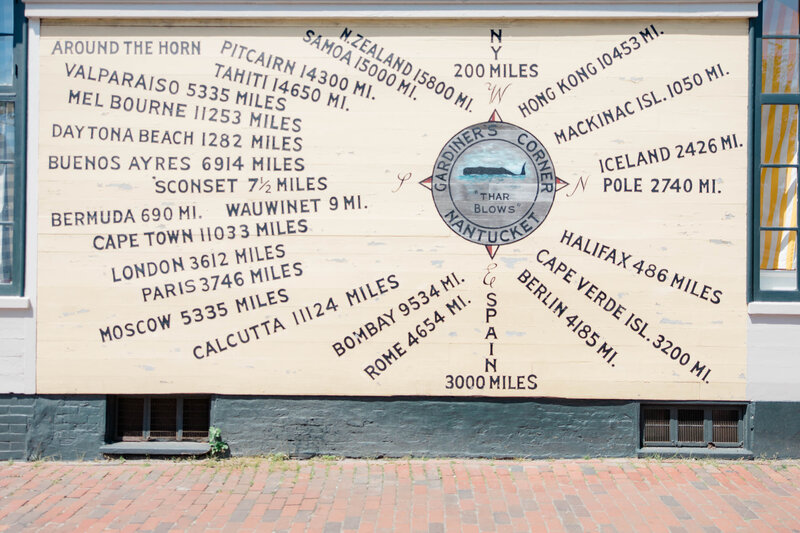 AROUND THE HORN
PITCAIRN 14300 MI.
TAHITI 14650 MI.
SAMOA 15000 MI.
N.ZEALAND 15800 MI.
VALPARAISO 5335 MILES
MEL BOURNE 11253 MILES
DAYTONA BEACH 1282 MILES
BUENOS AYRES 6914 MILES
'SCONSET 7½ MILES
BERMUDA 690 MI.
WAUWINET 9 MI.
CAPE TOWN 11033 MILES
LONDON 3612 MILES
PARIS 3746 MILES
MOSCOW 5335 MILES
CALCUTTA 11124 MILES
BOMBAY 9534 MI.
ROME 4654 MI.
NY
200 MILES
W
S
N
E
GARDINER'S CORNER
"THAR
BLOWS"
NANTUCKET
SPAIN
3000 MILES
HONG KONG 10453 MI.
MACKINAC ISL. 1050 MI.
ICELAND 2426 MI.
POLE 2740 MI.
HALIFAX 486 MILES
CAPE VERDE ISL. 3200 MI.
BERLIN 4185 MI.